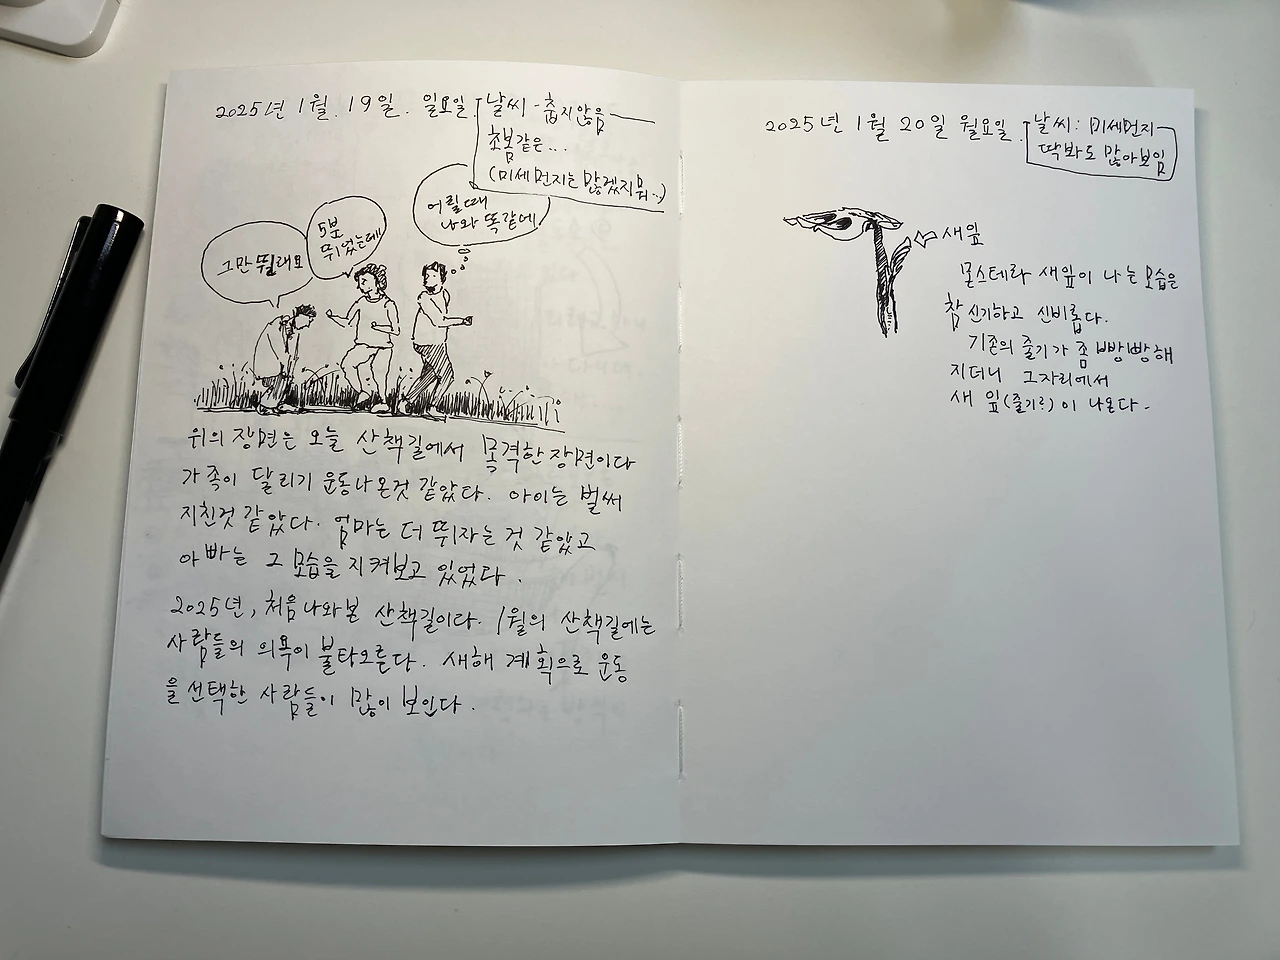 2025년 1월 19일. 일요일.
날씨 - 춥지않음
초봄같은...
(미세먼지는 많겠지뭐..)
그만 뛸래요
5분
뛰었는데!
어릴때
나와 똑같네
위의 장면은 오늘 산책길에서 목격한 장면이다
가족이 달리기 운동나온것 같았다. 아이는 벌써
지친것 같았다. 엄마는 더 뛰자는 것 같았고
아빠는 그 모습을 지켜보고 있었다.
2025년, 처음나와본 산책길이다. 1월의 산책길에는
사람들의 의욕이 불타오른다. 새해 계획으로 운동
을 선택한 사람들이 많이 보인다.
2025년 1월 20일 월요일.
날씨: 미세먼지
딱봐도 많아보임
새잎
몬스테라 새잎이 나는 모습은
참 신기하고 신비롭다.
기존의 줄기가 좀 빵빵해
지더니 그자리에서
새 잎(줄기?)이 나온다.